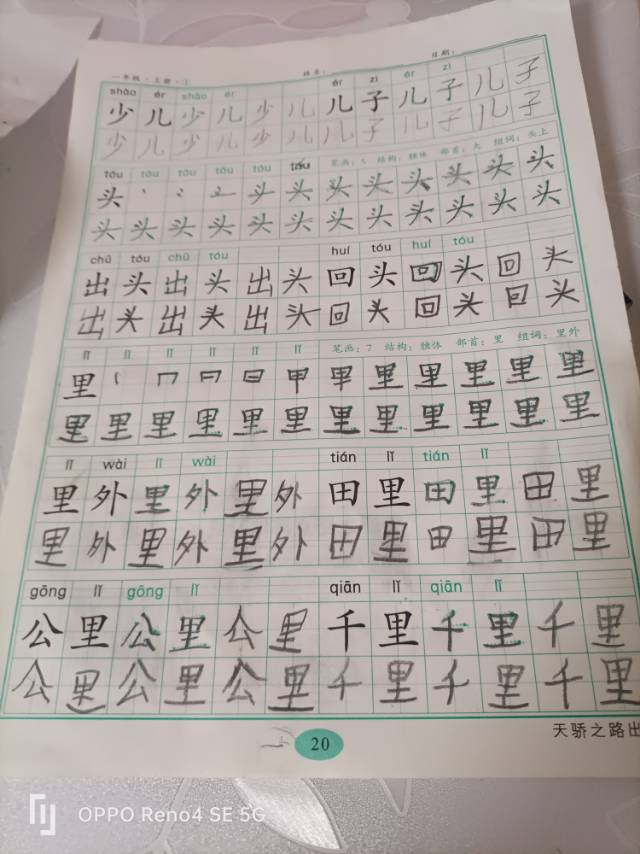 一年级·上册·① 姓名： 日期：
shào ér shào ér ér zi ér zi
少 儿 少 儿 少 儿 儿 子 儿 子 儿 子
少 儿 少 儿 少 儿 儿 子 儿 子 儿 子
tóu tóu tóu tóu tóu tóu 笔画：5 结构：独体 部首：大 组词：头上
头 头 头 头 头 头 头 头 头
头 头 头 头 头 头 头 头 头 头 头 头
chū tóu chū tóu huí tóu huí tóu
出 头 出 头 出 头 回 头 回 头 回 头
出 头 出 头 出 头 回 头 回 头 回 头
lǐ lǐ lǐ lǐ lǐ lǐ 笔画：7 结构：独体 部首：里 组词：里外
里 甲 里 里 里 里 里
里 里 里 里 里 里 里 里 里 里 里 里
lǐ wài lǐ wài tián lǐ tián lǐ
里 外 里 外 里 外 田 里 田 里 田 里
里 外 里 外 里 外 田 里 田 里 田 里
gōng lǐ gōng lǐ qiān lǐ qiān lǐ
公 里 公 里 公 里 千 里 千 里 千 里
公 里 公 里 公 里 千 里 千 里 千 里
20
天骄之路出
OPPO Reno4 SE 5G